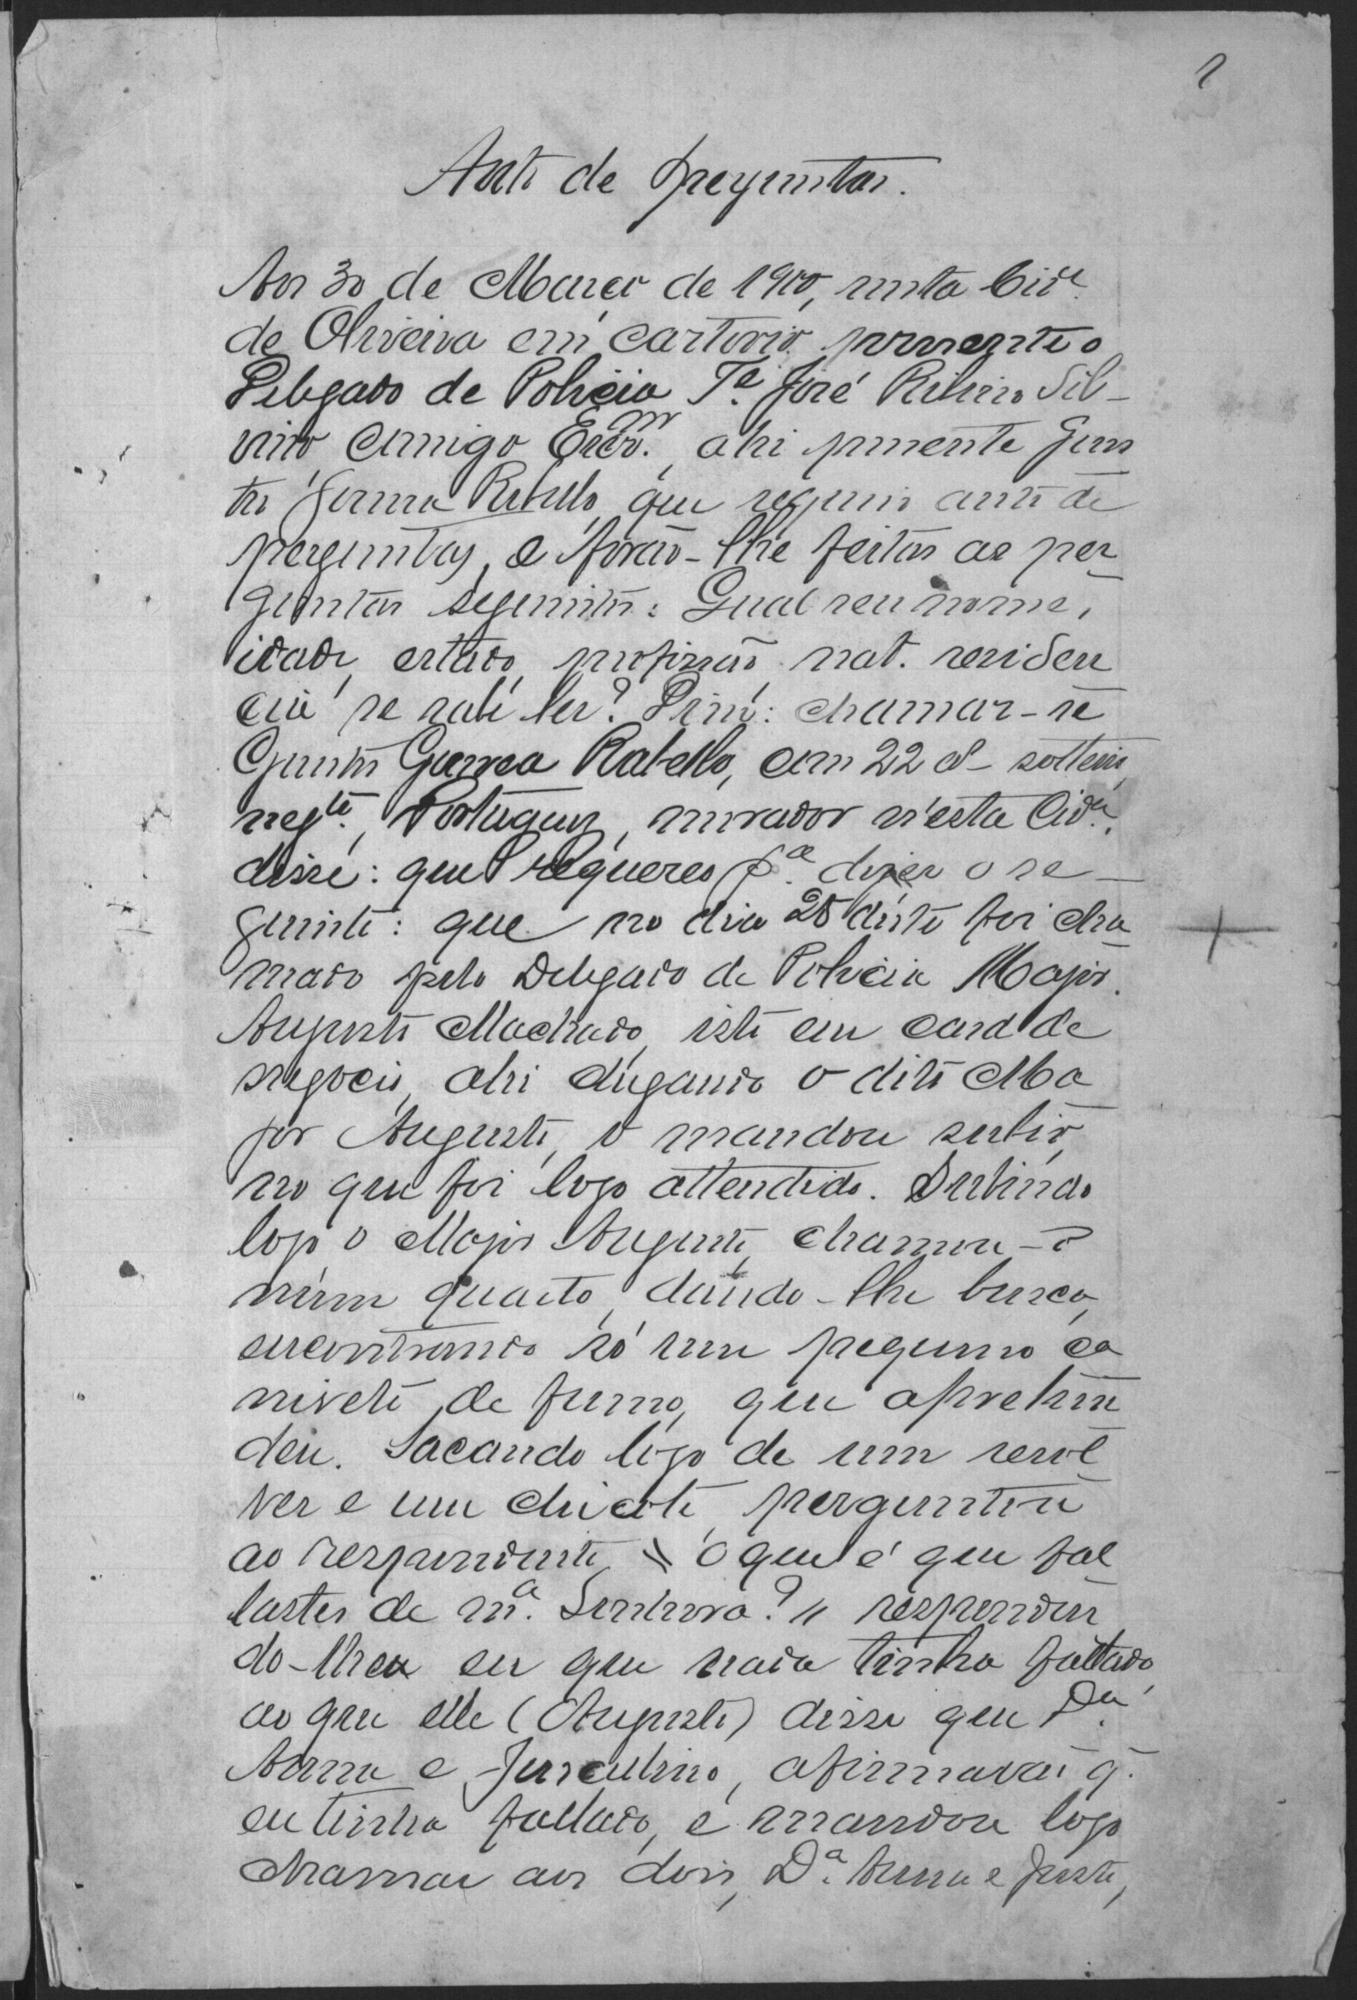 1
Auto de preguntas.
Aos 30 de Março de 1900, nesta Cid.e
de Oliveira em cartorio presente o
Delegado de Policia T.e José Ribeiro Sil-
vino comigo Escr.m, ahi presente
Guerra Rabello, que requereu auto de
perguntas, e forão-lhe feitas as per
guntas seguintes: Qual seu nome,
idade, estado, profissão, nat. residen
cia se sabe ler? : chamar-se
Guerra Rabello, com 22 a- solteiro,
neg.te, Portuguez, morador n'esta Cid.e,
disse: que requereo p.a dizer o se-
guinte: que no dia 28 deste foi cha
mado pelo Delegado de Policia Major
Augusto Machado, isto em casa de
negocio, ahi chegando o dito Ma
jor Augusto, o mandou subir,
no que foi logo attendido. Subindo
logo o Major Augusto, chamou-o
n'um quarto, dando-lhe busca,
encontrando só um pequeno ca
nivete de fumo, que aprehen
deu. Sacando logo de um revol
ver e um chicote, perguntou
ao respondente, "o que é que fal
lastes de m.a Senhora?" responden
do-lhe eu que nada tinha fallado,
ao que elle (Augusto) disse que D.a
Anna e Juscelino, afirmavão q.
eu tinha fallado, e mandou logo
chamar aos dois, D.a Anna e